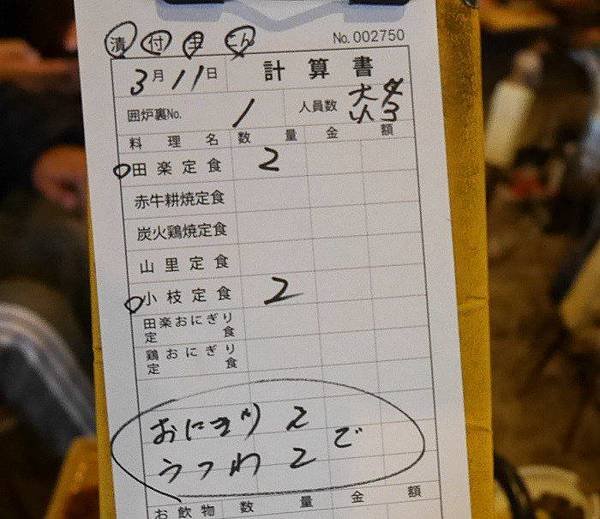 漬 付 里 こん
No. 002750
3月11日 計算書
囲炉裏No. 1 人員数 大4 小3
料理名 数量 金額
田楽定食 2
赤牛耕焼定食
炭火鶏焼定食
山里定食
小枝定食 2
田楽おにぎり定食
鶏おにぎり定食
おにぎり 2
うつわ 2 で
お飲物 数量 金額